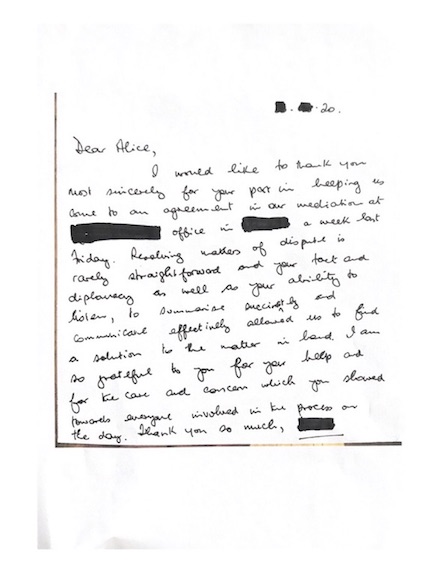 20.
Dear Alice,
I would like to thank you
most sincerely for your part in helping us
come to an agreement in our mediation at
office in a week last
Friday. Resolving matters of dispute is
rarely straightforward and your tact and
diplomacy as well as your ability to
listen, to summarise succinctly and
communicate effectively allowed us to find
a solution to the matter in hand. I am
so grateful to you for your help and
for the care and concern which you showed
towards everyone involved in the process on
the day. Thank you so much,